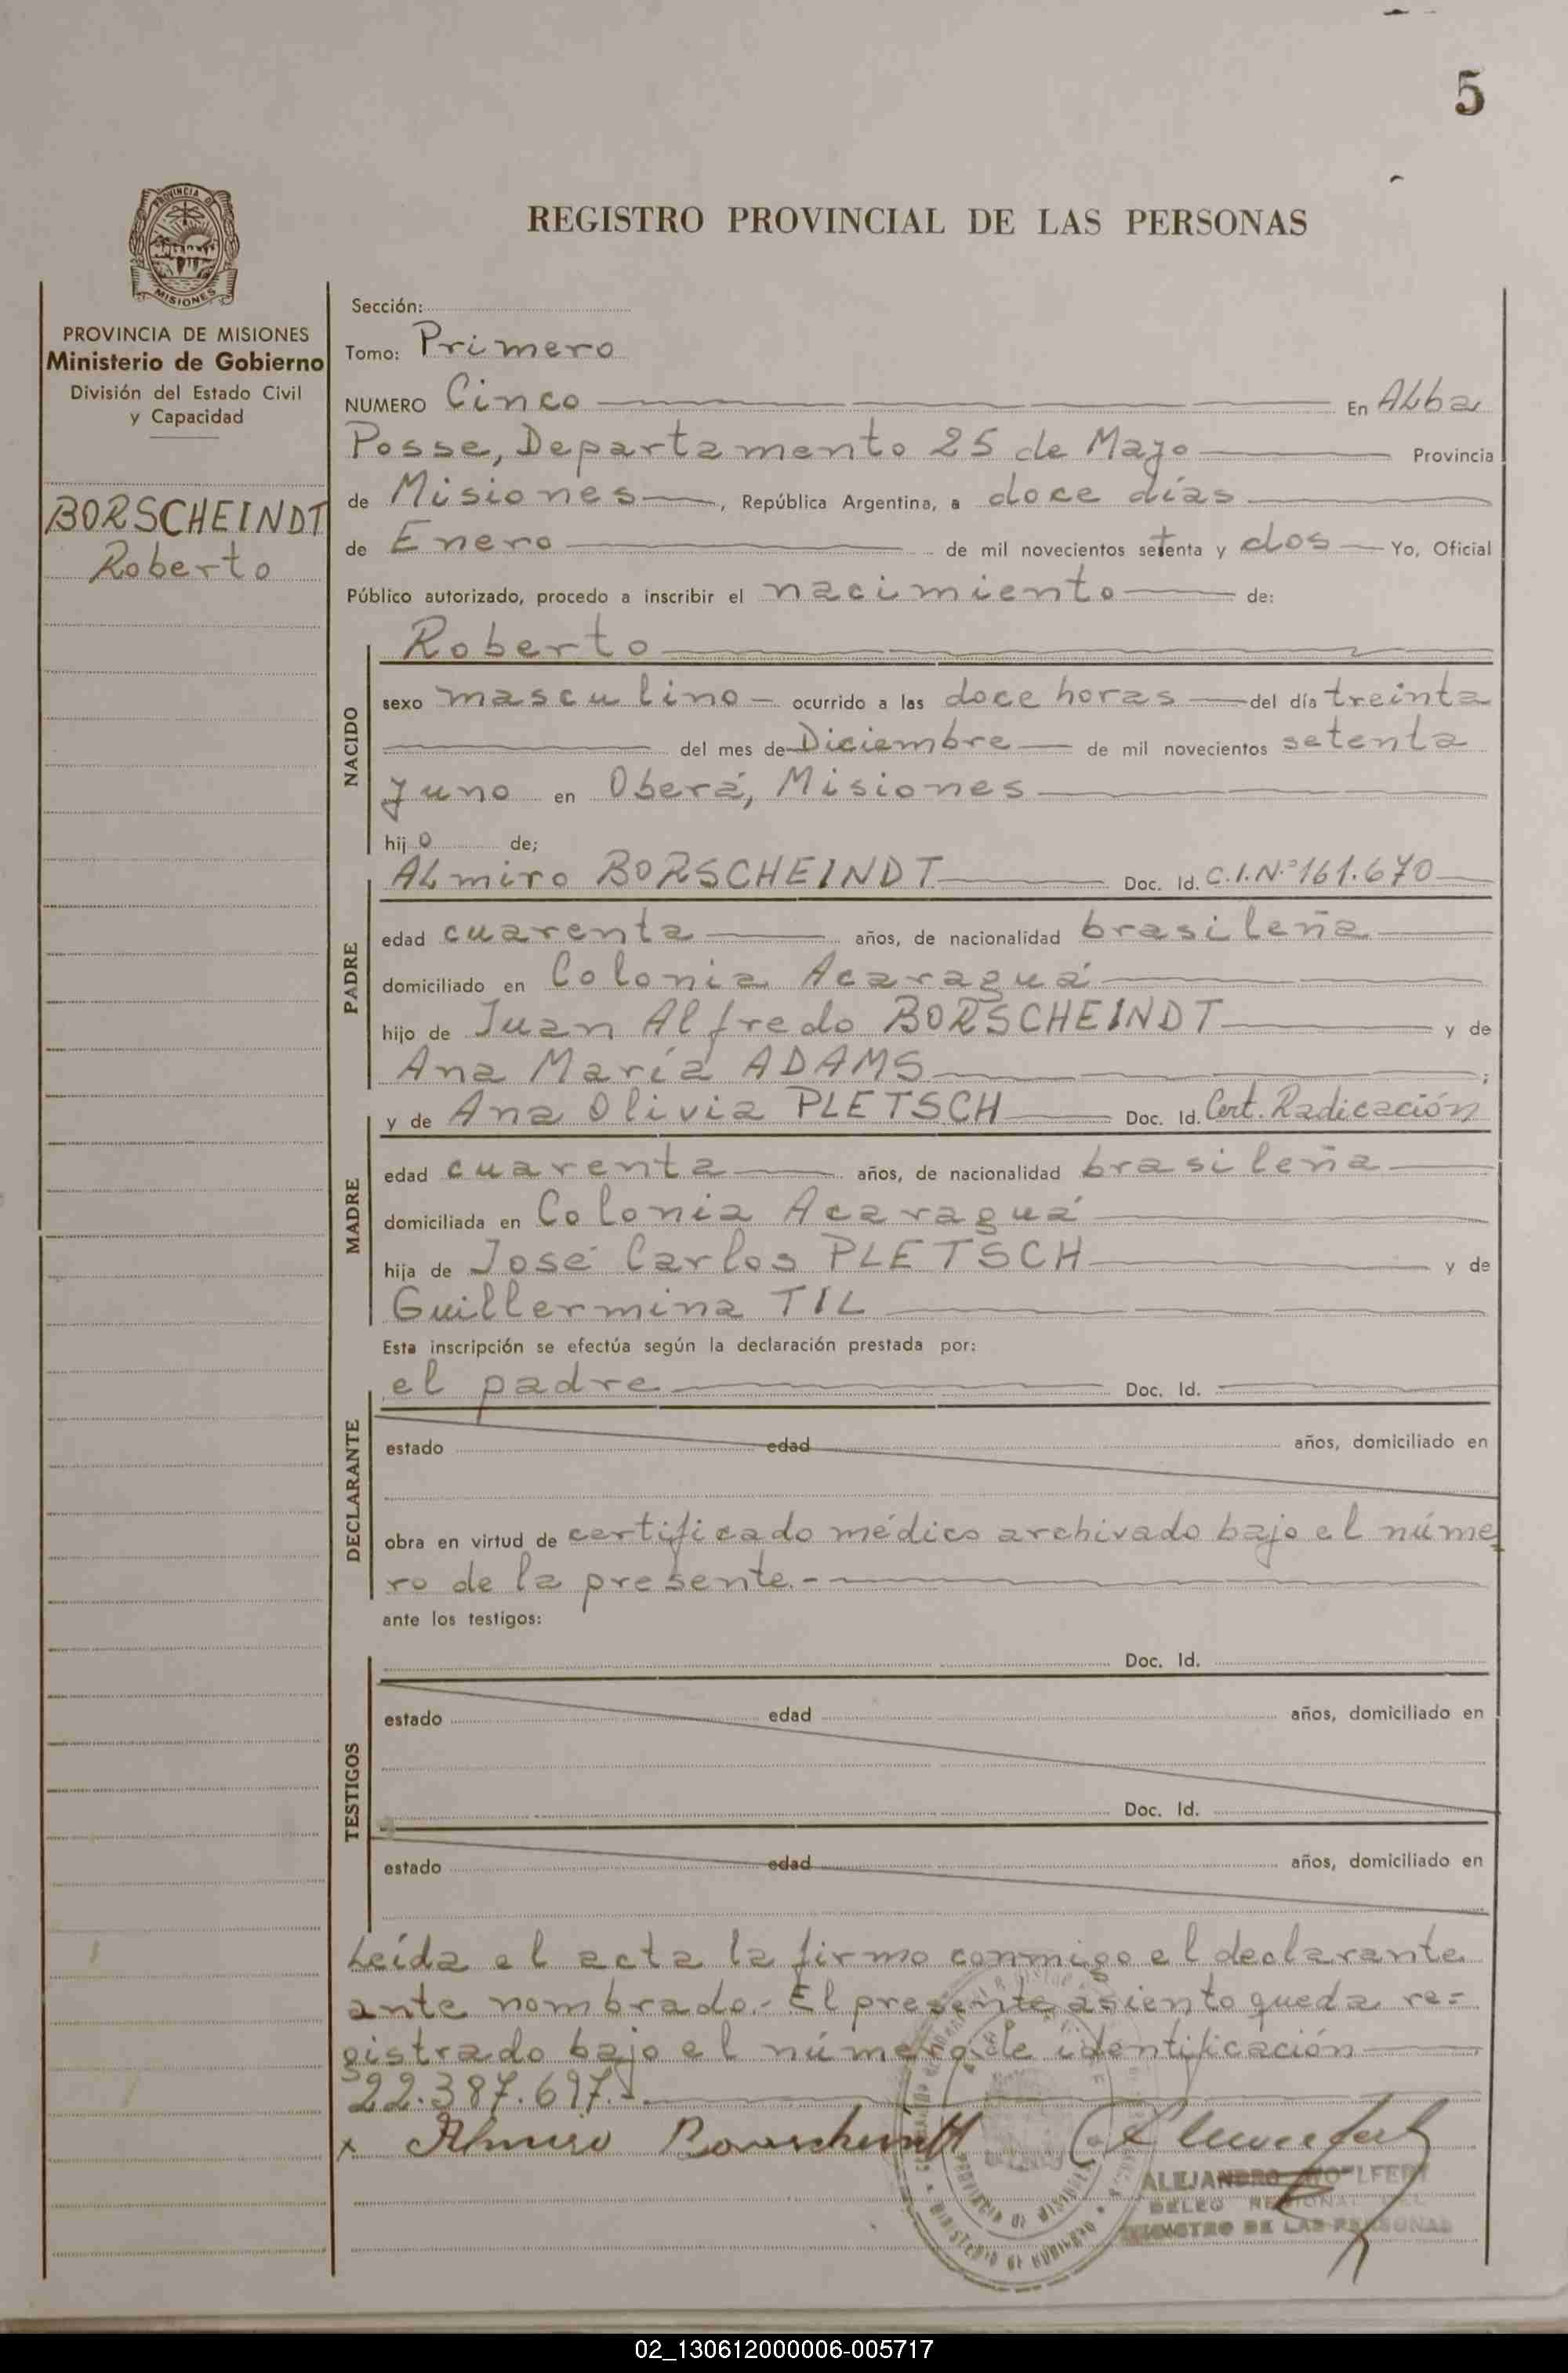 5
PROVINCIA DE
MISIONES
REGISTRO PROVINCIAL DE LAS PERSONAS
PROVINCIA DE MISIONES
Ministerio de Gobierno
División del Estado Civil
y Capacidad
BORSCHEINDT
Roberto
Sección:
Tomo: Primero
NUMERO Cinco En Alba
Posse, Departamento 25 de Mayo Provincia
de Misiones, República Argentina, a doce días
de Enero de mil novecientos setenta y dos Yo, Oficial
Público autorizado, procedo a inscribir el nacimiento de:
NACIDO
Roberto
sexo masculino ocurrido a las doce horas del día treinta
del mes de Diciembre de mil novecientos setenta
y uno en Oberá, Misiones
hijo de;
PADRE
Almiro BORSCHEINDT Doc. Id. C.I.Nº 161.670
edad cuarenta años, de nacionalidad brasileña
domiciliado en Colonia Acaraguá
hijo de Juan Alfredo BORSCHEINDT y de
Ana María ADAMS ;
MADRE
y de Ana Olivia PLETSCH Doc. Id. Cert. Radicación
edad cuarenta años, de nacionalidad brasileña
domiciliada en Colonia Acaraguá
hija de José Carlos PLETSCH y de
Guillermina TIL
Esta inscripción se efectúa según la declaración prestada por:
DECLARANTE
el padre Doc. Id.
estado edad años, domiciliado en
obra en virtud de certificado médico archivado bajo el núme
ro de la presente.-
ante los testigos:
TESTIGOS
Doc. Id.
estado edad años, domiciliado en
Doc. Id.
estado edad años, domiciliado en
Leída el acta la firmo conmigo el declarante
ante nombrado.- El presente asiento queda re=
gistrado bajo el número de identificación
22.387.697.-
x Almiro Borscheindt
ALEJANDRO
DELEG REGIONAL DEL
REGISTRO DE LAS PERSONAS
PROVINCIA DE MISIONES
MINISTERIO DE GOBIERNO
02_130612000006-005717